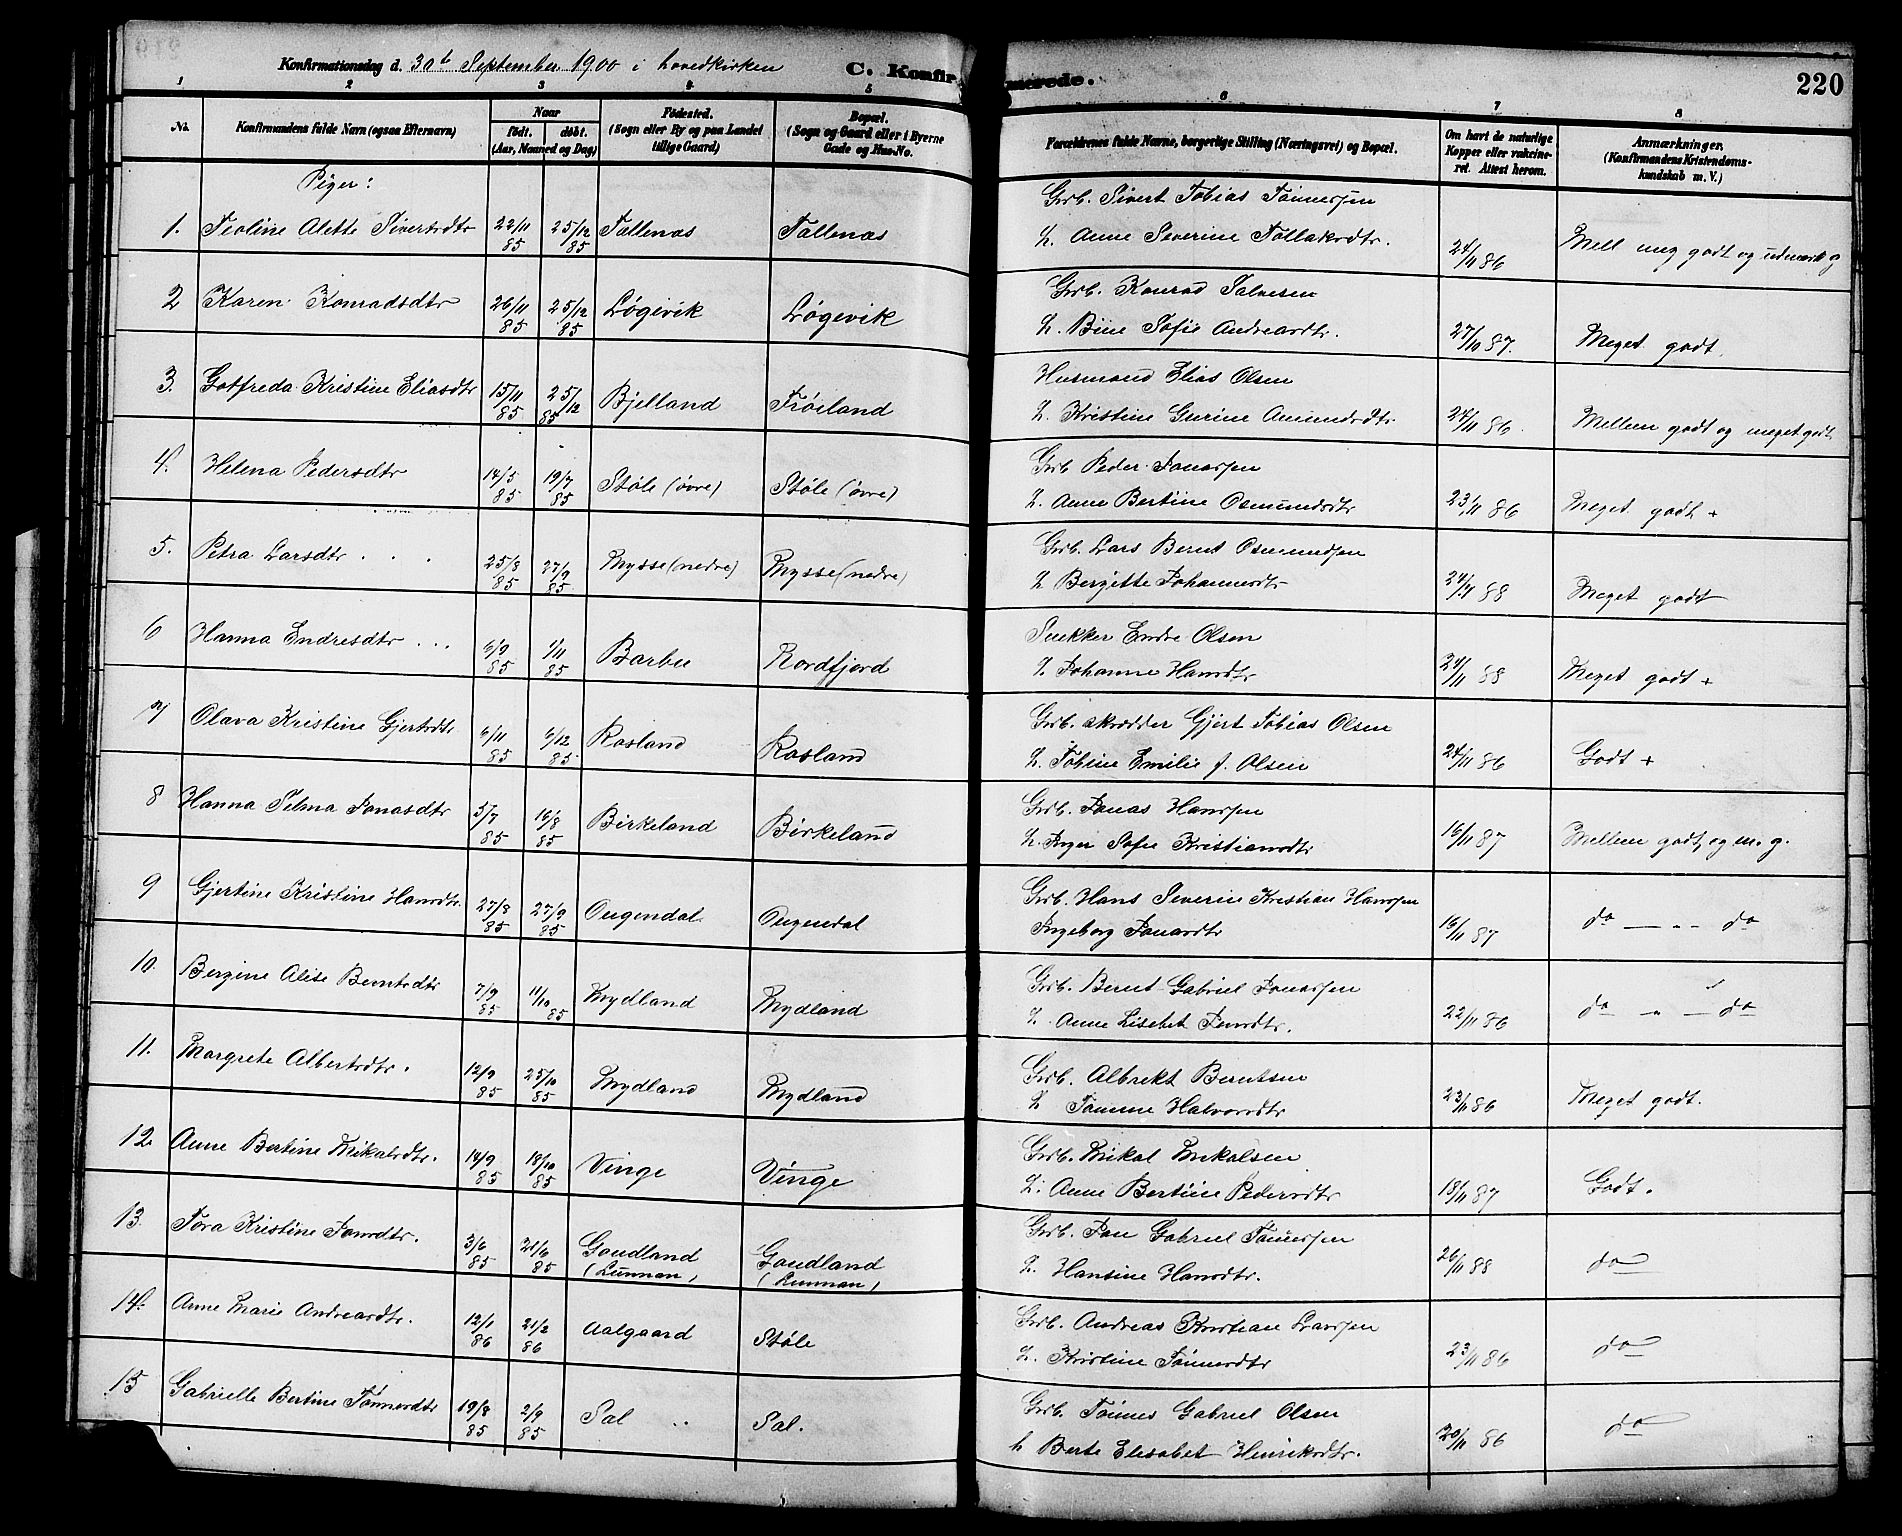 Konfirmationsdag d. 30te September 1900 i hovedkirken C. Konfirmerede. 220
1 2 3 4 5 6 7 8
No. Konfirmandens fulde Navn (ogsaa Efternavn) Naar født. døbt. (Aar, Maaned og Dag) Fødested. (Sogn eller By og paa Landet tillige Gaard) Bopæl. (Sogn og Gaard eller i Byerne Gade og Hus-No. Forældrenes fulde Navne, borgerlige Stilling (Næringsvei) og Bopæl. Om havt de naturlige Kopper eller vakcineret. Attest herom. Anmærkninger. (Konfirmandens Kristendomskundskab m. V.)
Piger:
1. Teoline Alette Sivertsdtr 22/11 85 25/12 85 Tallenæs Tallenæs Grb. Sivert Tobias Tønnessen
H. Anne Severine Tollaksdtr. 24/11 86 Mell meg godt og
2 Karen Konradsdtr 26/11 85 25/12 85 Løgevik Løgevik Grb. Konrad Salvesen
H. Bine Sofie Andreasdtr. 27/10 87. Meget godt.
3. Gotfreda Kristine Eliasdtr 15/11 85 25/12 85 Bjelland Frøiland Husmand Elias Olsen
H. Kristine Gurine Amundsdtr 24/11 86. Mellem godt og meget godt
4. Helena Pedersdtr 14/5 85 19/7 85 Støle (øvre) Støle (øvre) Grb Peder Jonassen
H. Anne Bertine Osmundsdtr 23/11 86 Meget godt +
5. Petra Larsdtr 25/8 85 27/9 85. Mysse (nedre) Mysse (nedre) Grb. Lars Bernt Osmundsen
H Bergitte Johannesdtr 24/11 88 Meget godt
6 Hanna Endresdtr 6/9 85 1/11 85 Barbu Nordfjord Snekker Endre Olsen
H. Johanne Hansdtr 24/11 88 Meget godt +
7 Olava Kristine Gjertsdtr 6/11 85 6/12 85 Rosland Rosland Grb. skrædder Gjert Tobias Olsen
H. Tobine Emilie f. Olsen 24/11 86 Godt +
8 Hanna Selma Jonasdtr 5/7 85 16/8 85 Birkeland Birkeland Grb. Jonas Hanssen
H. Inger Sofie Kristiansdtr 16/11 87 Mellem godt, og m. g.
9 Gjertine Kristine Hansdtr. 27/8 85 27/9 85 Ougendal Ougendal Grb. Hans Severin Kristian Hanssen
Ingeborg Jonasdtr 16/11 87 do — „ - do
10. Bergine Alise Berntsdtr 7/9 85 11/10 85 Mydland Mydland Grb. Bernt Gabriel Jonassen
H. Anne Lisebet Jensdtr. 22/11 86 do - „ — do
11. Margrete Albertsdtr. 12/9 85 25/10 85 Mydland Mydland Grb. Albrekt Berntsen
H Tomine Halvorsdtr 23/11 86 Meget godt.
12. Anne Bertine Mikalsdtr. 14/9 85 18/10 85 Vinge Vinge Grb. Mikal Mikalsen
H. Anne Bertine Pedersdtr 18/11 87 Godt.
13. Tora Kristine Jansdtr. 3/6 85 21/6 85 Goudland (Lunnan) Goudland (Lunnan) Grb. Jan Gabriel Tønnessen
H. Hansine Hansdtr. 26/11 88 do
14. Anne Marie Andreasdtr. 12/1 86 21/2 86 Aalgaard Støle Grb. Andreas Kristian Larssen
H. Kristine Tønnesdtr 23/11 86 do
15 Gabrielle Bertine Tønnesdtr 19/8 85 2/9 85 Sal Sal. Grb. Tønnes Gabriel Olsen
H Berte Elisabet Henriksdtr. 20/11 86 do